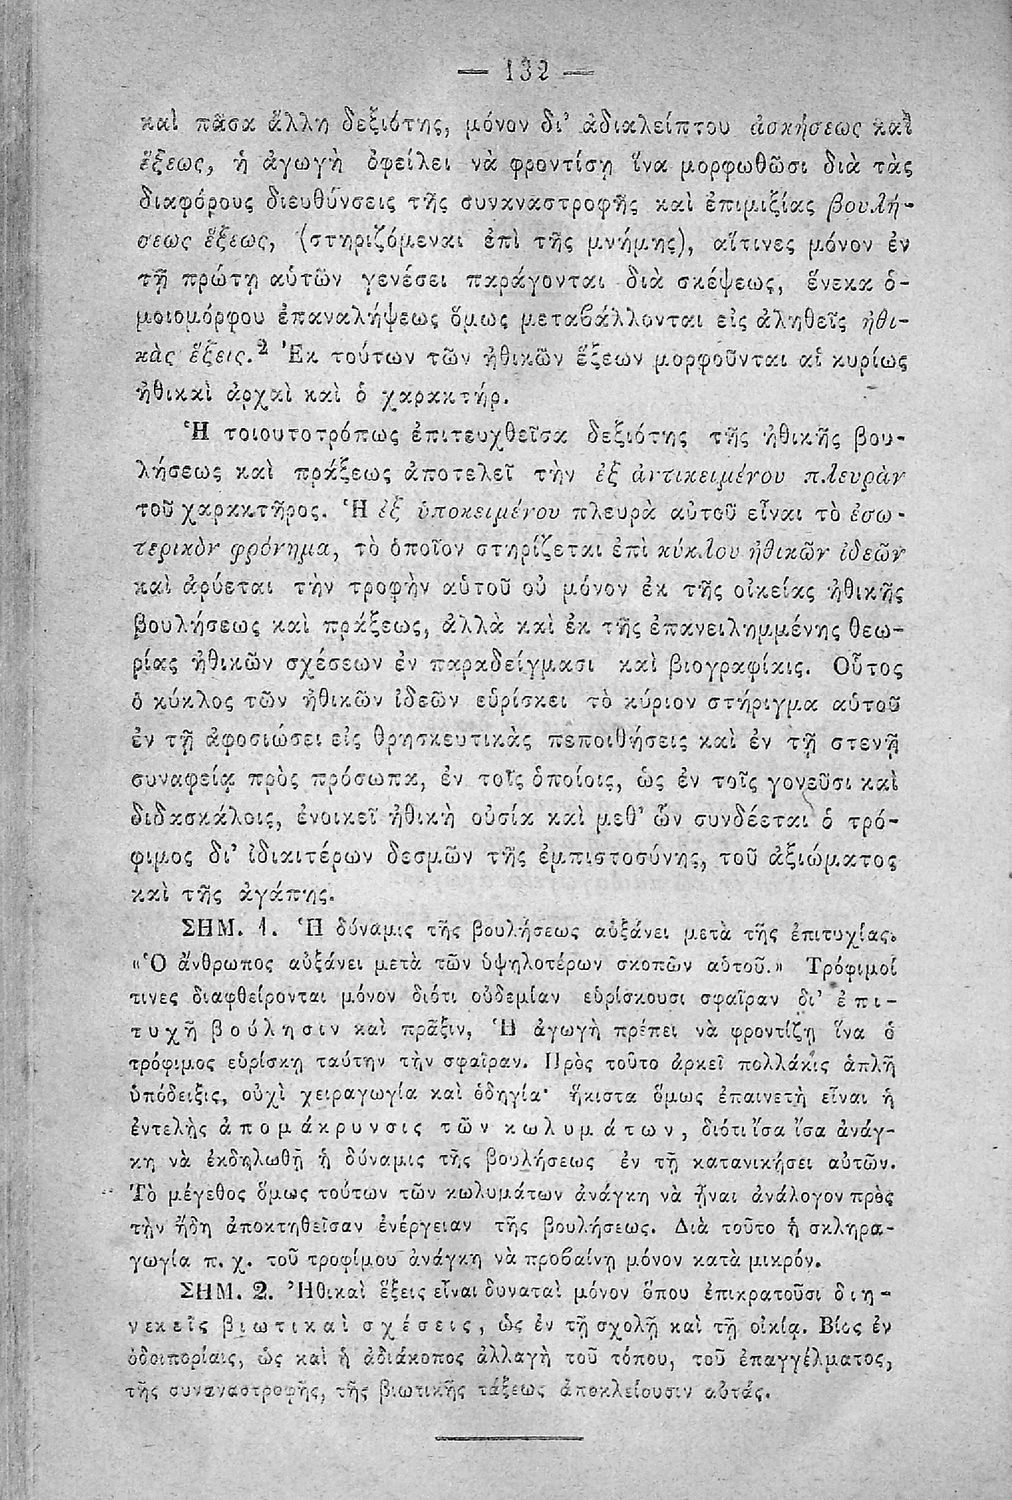 — 132 —
καὶ πᾶσα ἄλλη δεξιότης, μόνον δι’ ἀδιαλείπτου ἀσκήσεως καὶ
ἕξεως, ἡ ἀγωγὴ ὀφείλει νὰ φροντίσῃ ἵνα μορφωθῶσι διὰ τὰς
διαφόρους διευθύνσεις τῆς συναναστροφῆς καὶ ἐπιμιξίας βουλή-
σεως ἕξεως, (στηριζόμεναι ἐπὶ τῆς μνήμης), αἵτινες μόνον ἐν
τῇ πρώτῃ αὑτῶν γενέσει παράγονται διὰ σκέψεως, ἕνεκα ὁ-
μοιομόρφου ἐπαναλήψεως ὅμως μεταβάλλονται εἰς ἀληθεῖς ἠθι-
κὰς ἕξεις.² Ἐκ τούτων τῶν ἠθικῶν ἕξεων μορφοῦνται αἱ κυρίως
ἠθικαὶ ἀρχαὶ καὶ ὁ χαρακτήρ.
Ἡ τοιουτοτρόπως ἐπιτευχθεῖσα δεξιότης τῆς ἠθικῆς βου-
λήσεως καὶ πράξεως ἀποτελεῖ τὴν ἐξ ἀντικειμένου πλευρὰν
τοῦ χαρακτῆρος. Ἡ ἐξ ὑποκειμένου πλευρὰ αὐτοῦ εἶναι τὸ ἐσω-
τερικὸν φρόνημα, τὸ ὁποῖον στηρίζεται ἐπὶ κύκλου ἠθικῶν ἰδεῶν
καὶ ἀρύεται τὴν τροφὴν αὑτοῦ οὐ μόνον ἐκ τῆς οἰκείας ἠθικῆς
βουλήσεως καὶ πράξεως, ἀλλὰ καὶ ἐκ τῆς ἐπανειλημμένης θεω-
ρίας ἠθικῶν σχέσεων ἐν παραδείγμασι καὶ βιογραφίαις. Οὗτος
ὁ κύκλος τῶν ἠθικῶν ἰδεῶν εὑρίσκει τὸ κύριον στήριγμα αὑτοῦ
ἐν τῇ ἀφοσιώσει εἰς θρησκευτικὰς πεποιθήσεις καὶ ἐν τῇ στενῇ
συναφείᾳ πρὸς πρόσωπα, ἐν τοῖς ὁποίοις, ὡς ἐν τοῖς γονεῦσι καὶ
διδασκάλοις, ἐνοικεῖ ἠθικὴ οὐσία καὶ μεθ’ ὧν συνδέεται ὁ τρό-
φιμος δι’ ἰδιαιτέρων δεσμῶν τῆς ἐμπιστοσύνης, τοῦ ἀξιώματος
καὶ τῆς ἀγάπης.
ΣΗΜ. 1. Ἡ δύναμις τῆς βουλήσεως αὐξάνει μετὰ τῆς ἐπιτυχίας.
«Ὁ ἄνθρωπος αὐξάνει μετὰ τῶν ὑψηλοτέρων σκοπῶν αὑτοῦ.» Τρόφιμοί
τινες διαφθείρονται μόνον διότι οὐδεμίαν εὑρίσκουσι σφαῖραν δι’ ἐπι-
τυχῆ βούλησιν καὶ πρᾶξιν, Ἡ ἀγωγὴ πρέπει νὰ φροντίζῃ ἵνα ὁ
τρόφιμος εὑρίσκῃ ταύτην τὴν σφαῖραν. Πρὸς τοῦτο ἀρκεῖ πολλάκις ἁπλῆ
ὑπόδειξις, οὐχὶ χειραγωγία καὶ ὁδηγία· ἥκιστα ὅμως ἐπαινετὴ εἶναι ἡ
ἐντελὴς ἀπομάκρυνσις τῶν κωλυμάτων, διότι ἴσα ἴσα ἀνάγ-
κη νὰ ἐκδηλωθῇ ἡ δύναμις τῆς βουλήσεως ἐν τῇ κατανικήσει αὐτῶν.
Τὸ μέγεθος ὅμως τούτων τῶν κωλυμάτων ἀνάγκη νὰ ἦναι ἀνάλογον πρὸς
τὴν ἤδη ἀποκτηθεῖσαν ἐνέργειαν τῆς βουλήσεως. Διὰ τοῦτο ἡ σκληρα-
γωγία π. χ. τοῦ τροφίμου ἀνάγκη νὰ προβαίνῃ μόνον κατὰ μικρόν.
ΣΗΜ. 2. Ἠθικαὶ ἕξεις εἶναι δυναταὶ μόνον ὅπου ἐπικρατοῦσι διη-
νεκεῖς βιωτικαὶ σχέσεις, ὡς ἐν τῇ σχολῇ καὶ τῇ οἰκίᾳ. Βίος ἐν
ὁδοιπορίαις, ὡς καὶ ἡ ἀδιάκοπος ἀλλαγὴ τοῦ τόπου, τοῦ ἐπαγγέλματος,
τῆς συναναστροφῆς, τῆς βιωτικῆς τάξεως ἀποκλείουσιν αὐτάς.